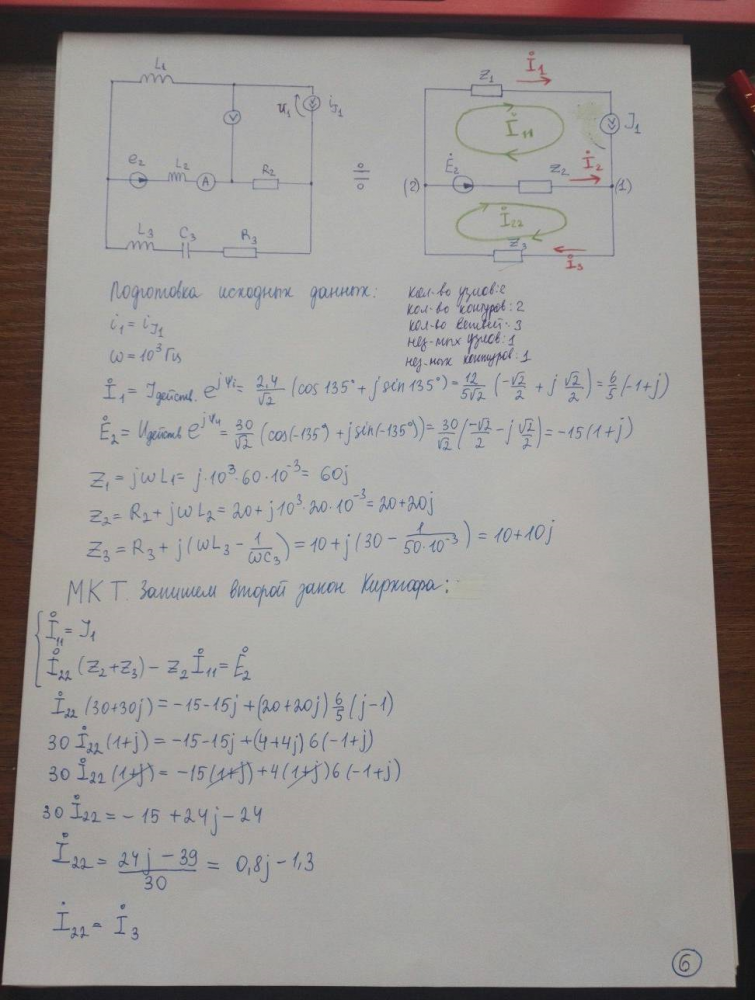 L₁
u₁ i_J₁
V
e₂ L₂ A R₂
L₃ C₃ R₃
Z₁ İ₁
İ₁₁ J₁
(2) Ė₂ Z₂ İ₂ (1)
İ₂₂
Z₃ İ₃
Подготовка исходных данных:
кол-во узлов: 2
кол-во контуров: 2
кол-во ветвей: 3
нез-мых узлов: 1
нез-мых контуров: 1
i₁ = i_J₁
ω = 10³ Гц
İ₁ = I_действ. e^(jψi) = 2,4/√2 (cos 135° + j sin 135°) = 12/(5√2) (-√2/2 + j √2/2) = 6/5 (-1+j)
Ė₂ = U_действ e^(jψu) = 30/√2 (cos(-135°) + j sin(-135°)) = 30/√2 (-√2/2 - j √2/2) = -15(1+j)
Z₁ = jωL₁ = j·10³·60·10⁻³ = 60j
Z₂ = R₂ + jωL₂ = 20 + j10³·20·10⁻³ = 20+20j
Z₃ = R₃ + j(ωL₃ - 1/(ωC₃)) = 10 + j(30 - 1/(50·10⁻³)) = 10+10j
МКТ. Запишем второй закон Кирхгофа:
İ₁₁ = J₁
İ₂₂ (Z₂+Z₃) - Z₂ İ₁₁ = Ė₂
İ₂₂ (30+30j) = -15-15j + (20+20j) 6/5 (j-1)
30 İ₂₂ (1+j) = -15-15j + (4+4j) 6 (-1+j)
30 İ₂₂ (1+j) = -15 (1+j) + 4 (1+j) 6 (-1+j)
30 İ₂₂ = -15 + 24j - 24
İ₂₂ = (24j - 39)/30 = 0,8j - 1,3
İ₂₂ = İ₃
6